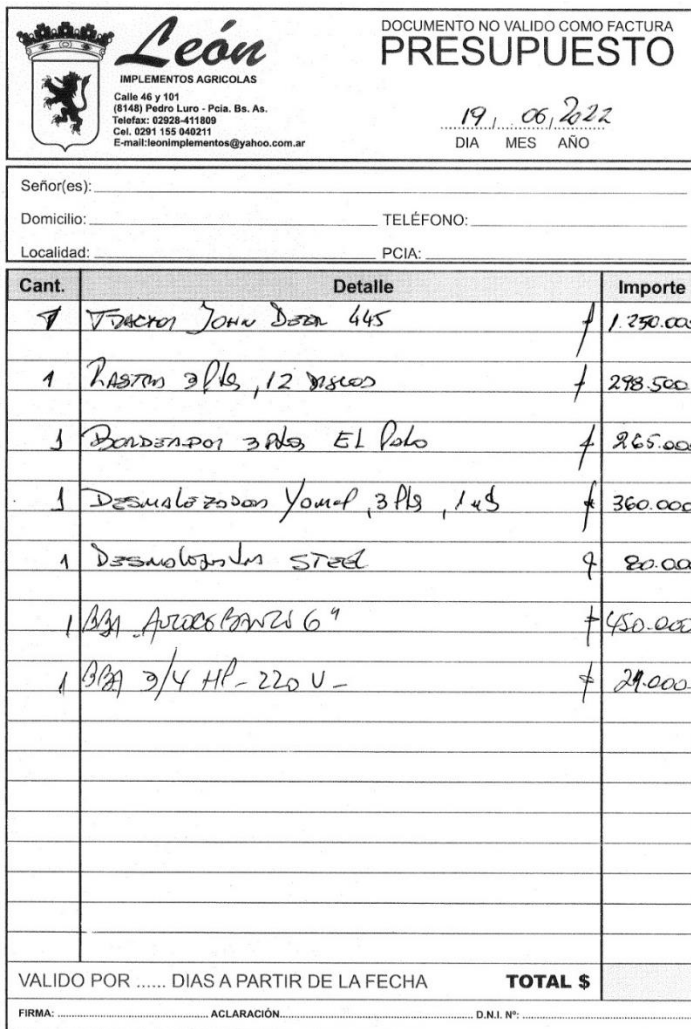 León
IMPLEMENTOS AGRICOLAS
Calle 46 y 101
(8148) Pedro Luro - Pcia. Bs. As.
Telefax: 02928-411809
Cel. 0291 155 040211
E-mail:leonimplementos@yahoo.com.ar
DOCUMENTO NO VALIDO COMO FACTURA
PRESUPUESTO
19, 06, 2022
DIA MES AÑO
Señor(es):
Domicilio: TELÉFONO:
Localidad: PCIA:
Cant. Detalle Importe
1 John 445 1.250.00
1 3 Pts, 12 Discos 298.500
1 3 Pts El Polo 265.00
1 Yomel, 3 Pts, 360.000
1 STEEL 80.00
1 BBA 6" 450.000
1 BBA 3/4 HP - 220 V - .000
VALIDO POR ...... DIAS A PARTIR DE LA FECHA TOTAL $
FIRMA: ACLARACIÓN D.N.I. Nº: